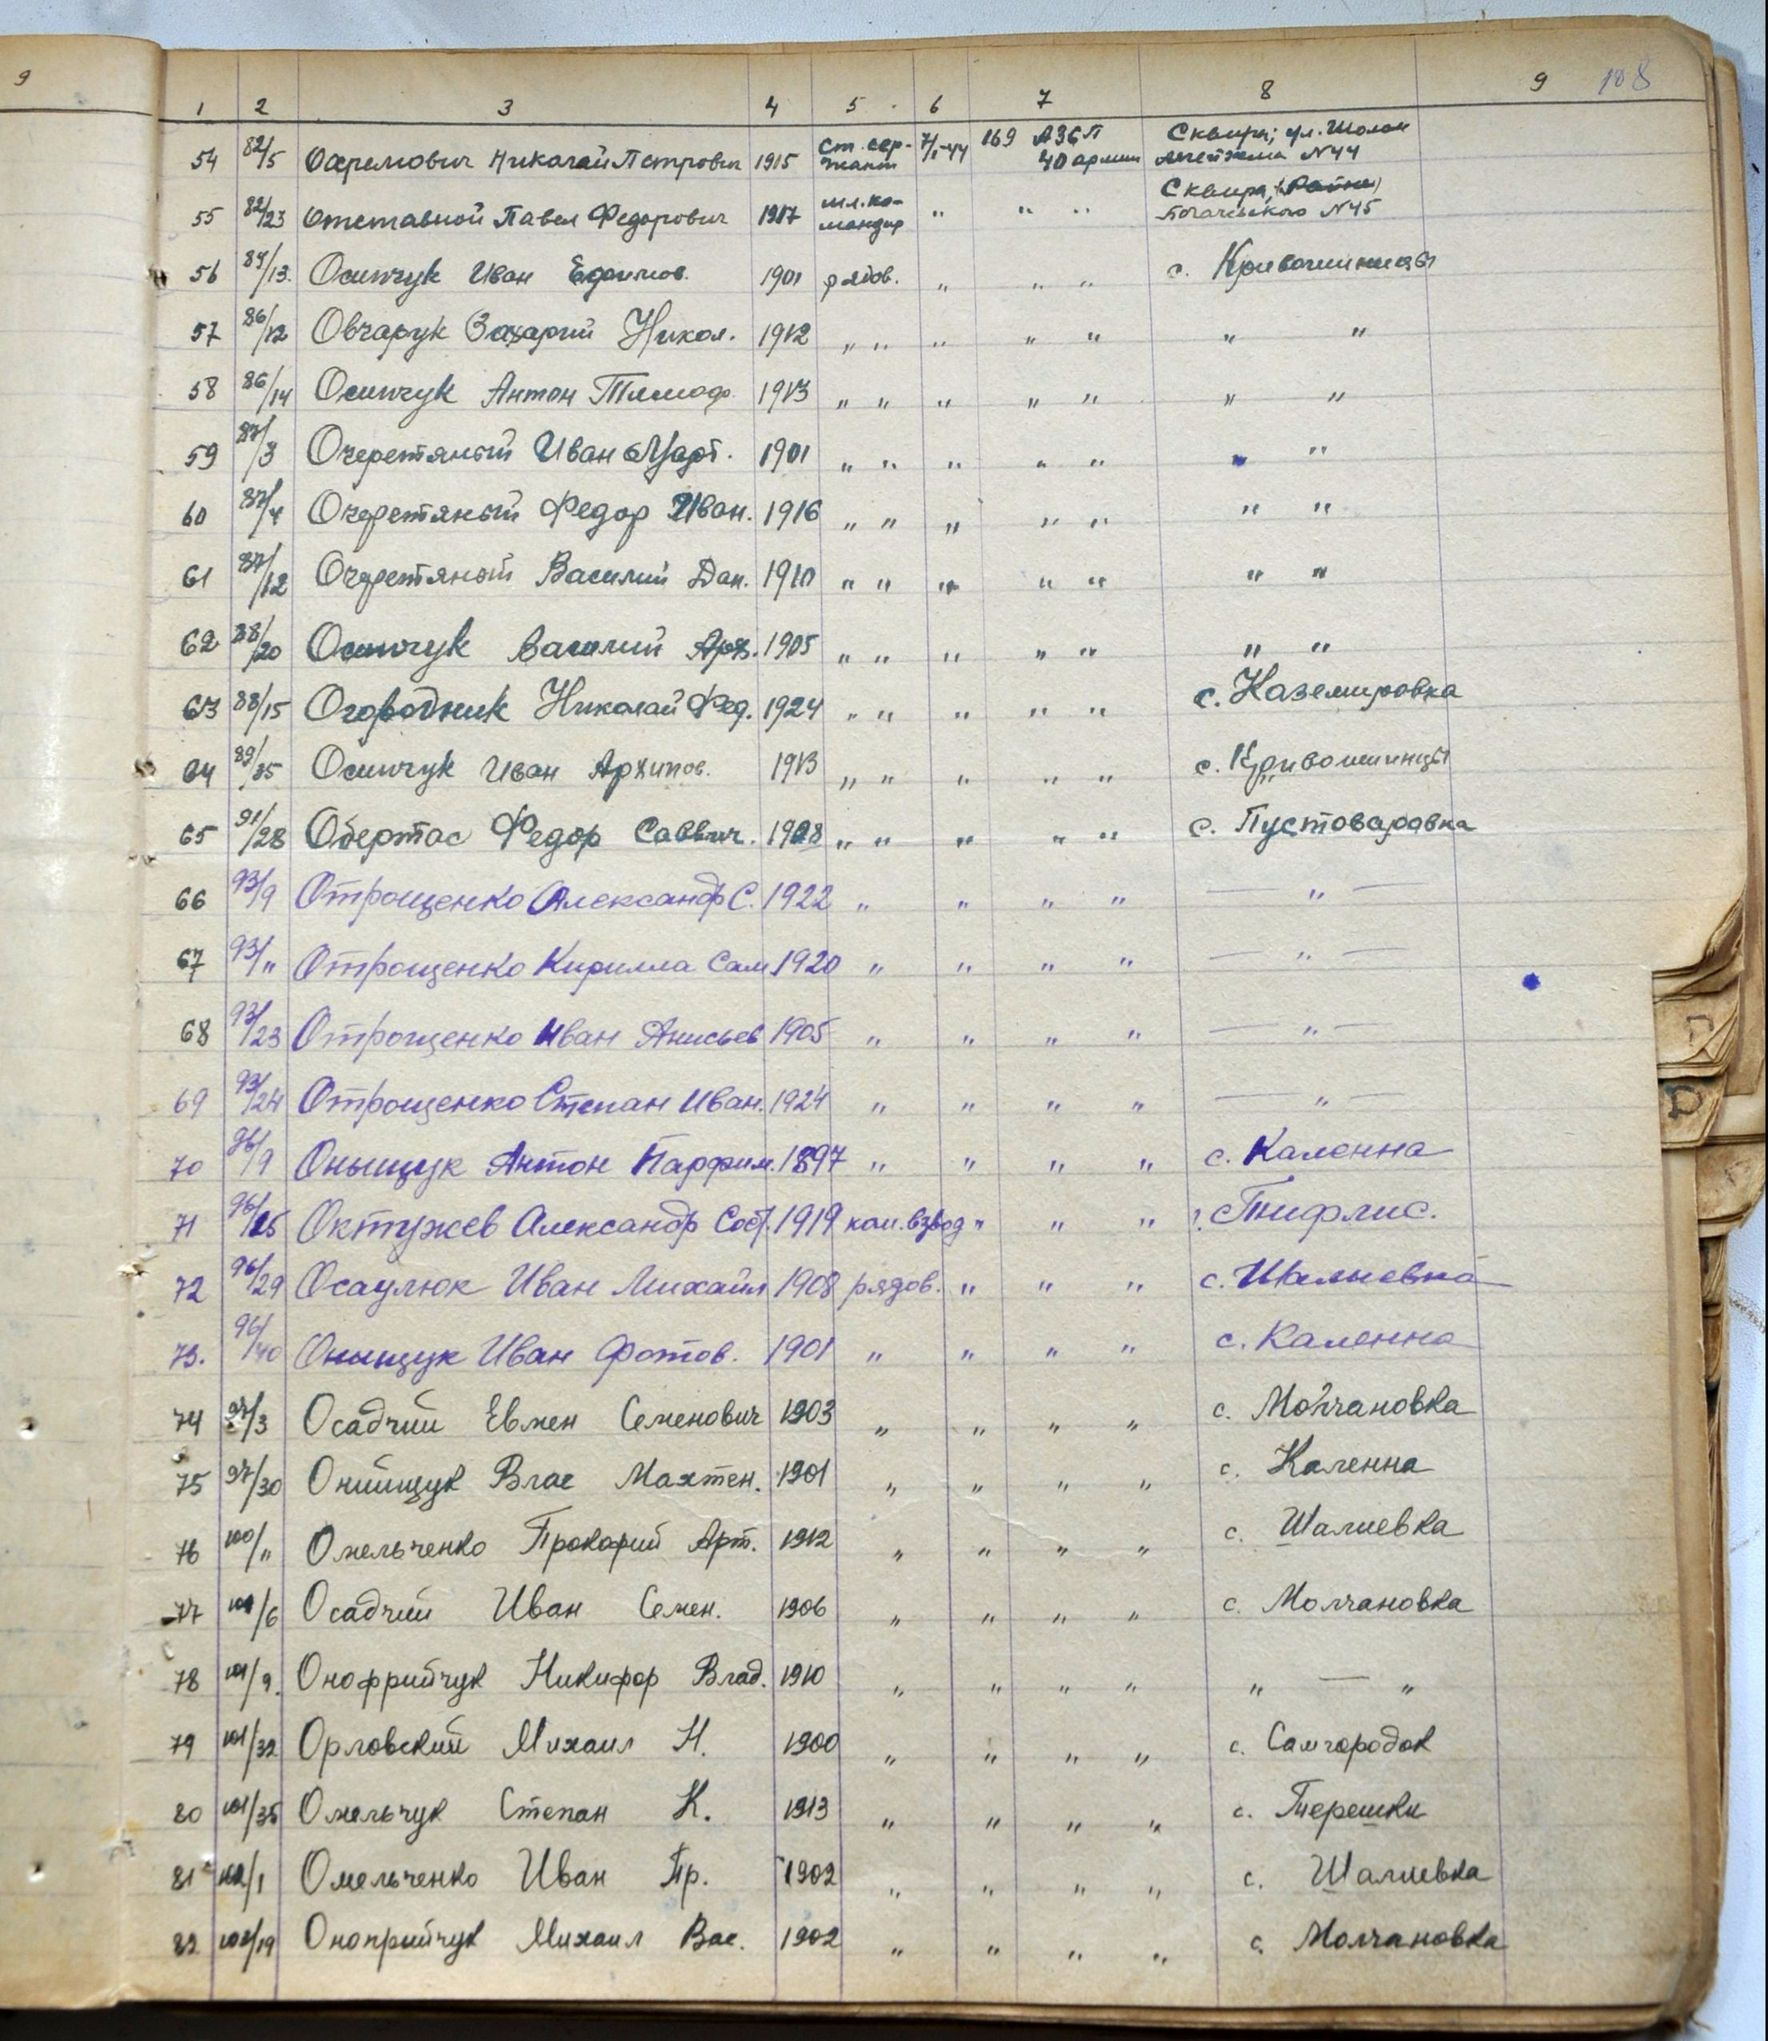 9
1 2 3 4 5 6 7 8 9 108
54 82/5 Охримович Николай Петрович 1915 ст. сержант 7/I-44 169 АЗСП 40 армии Сквира, ул. Шолом Алейхема N44
55 82/23 Отставной Павел Федорович 1917 мл. командир " " " Сквира, N45
56 84/13 Осипчук Иван Ефимов. 1901 рядов. " " " с. Кривошиинцы
57 86/12 Овчарук Захарий Никол. 1912 " " " " " " "
58 86/14 Осипчук Антон Тимоф. 1913 " " " " " " "
59 87/3 Очеретяный Иван Март. 1901 " " " " " " "
60 87/4 Очеретяный Федор Иван. 1916 " " " " " " "
61 87/12 Очеретяный Василий Дан. 1910 " " " " " " "
62 88/20 Осипчук Василий Арх. 1905 " " " " " " "
63 88/15 Огородник Николай Фед. 1924 " " " " " с. Каземировка
64 89/35 Осипчук Иван Архипов. 1913 " " " " " с. Кривошиинцы
65 91/28 Обертас Федор Саввич. 1908 " " " " " с. Пустоваровка
66 93/9 Отрощенко Александр С. 1922 " " " " — " —
67 93/11 Отрощенко Кирилла Сам 1920 " " " " — " —
68 93/23 Отрощенко Иван Анисьев 1905 " " " " — " —
69 93/24 Отрощенко Степан Иван. 1924 " " " " — " —
70 96/9 Оныщук Антон Парфим. 1897 " " " " с. Каленна
71 96/25 Октужев Александр 1919 ком. взвод " " " г. Тифлис.
72 96/29 Осаулюк Иван Михайл 1908 рядов. " " " с. Шалиевка
73. 96/40 Оныщук Иван Фотов. 1901 " " " " с. Каленна
74 97/3 Осадчий Евмен Семенович 1903 " " " " с. Молчановка
75 97/30 Онищук Влас Мактен. 1901 " " " " с. Каленна
76 100/11 Омельченко Прокофий Арт. 1912 " " " " с. Шалиевка
77 101/6 Осадчий Иван Семен. 1906 " " " " с. Молчановка
78 101/9. Онофрийчук Никифор Влад. 1910 " " " " " — "
79 101/32 Орловский Михаил Н. 1900 " " " " с. Самгородок
80 101/35 Омельчук Степан К. 1913 " " " " с. Терешки
81 102/1 Омельченко Иван Пр. 1902 " " " " с. Шалиевка
82 102/19 Оноприйчук Михаил Вас. 1902 " " " " с. Молчановка